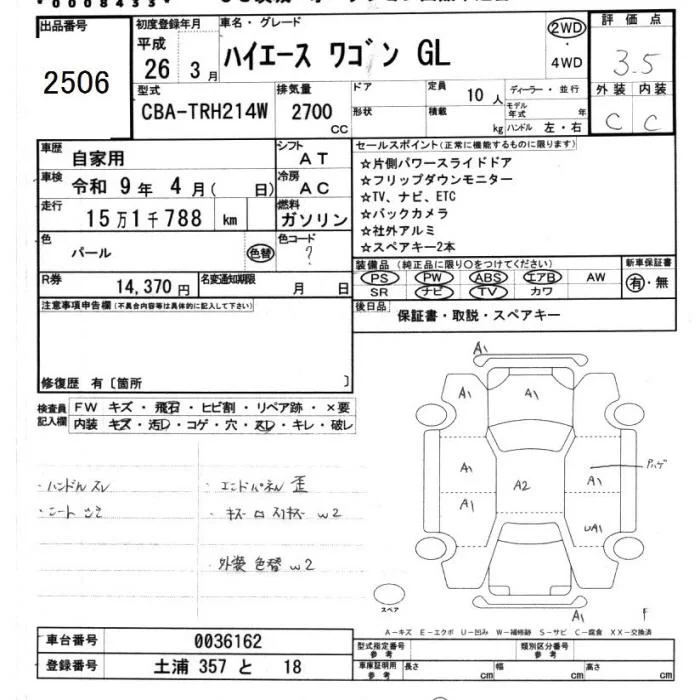 *0008433*
出品番号
2506
初度登録年月
平成
26 3月
車名・グレード
ハイエース ワゴン GL
2WD
・
4WD
評価点
3.5
外装 内装
C C
型式
CBA-TRH214W
排気量
2700
CC
ドア
形状
定員 10 人
積載 kg
ディーラー・並行
モデル年式 年
ハンドル 左・右
車歴 自家用
シフト AT
車検 令和 9年 4月( 日)
冷房 AC
走行 15万1千788 km
燃料 ガソリン
色 パール 色替
色コード ?
R券 14,370円
名変通知期限 月 日
セールスポイント(正常に機能するものに限ります)
☆片側パワースライドドア
☆フリップダウンモニター
☆TV、ナビ、ETC
☆バックカメラ
☆社外アルミ
☆スペアキー2本
装備品 (純正品に限り○をつけてください)
PS PW ABS エアB AW
SR ナビ TV カワ
新車保証書
有・無
後日品 保証書・取説・スペアキー
注意事項申告欄(不具合内容等は具体的に記入して下さい)
修復歴 有〔箇所 〕
検査員記入欄
FW キズ・飛石・ヒビ割・リペア跡・×要
内装 キズ・汚レ・コゲ・穴・スレ・キレ・破レ
・ハンドルスレ
・エンドパネル 歪
w2
・外装 色替 w2
A1
A1
A1
A1
A1
A2
A1
UA1
A1
F
スペア
A-キズ E-エクボ U-凹み W-補修跡 S-サビ C-腐食 XX-交換済
車台番号 0036162
登録番号 土浦 357 と 18
型式指定番号 参考
類別区分番号 参考
車庫証明用 参考
長さ cm
幅 cm
高さ cm